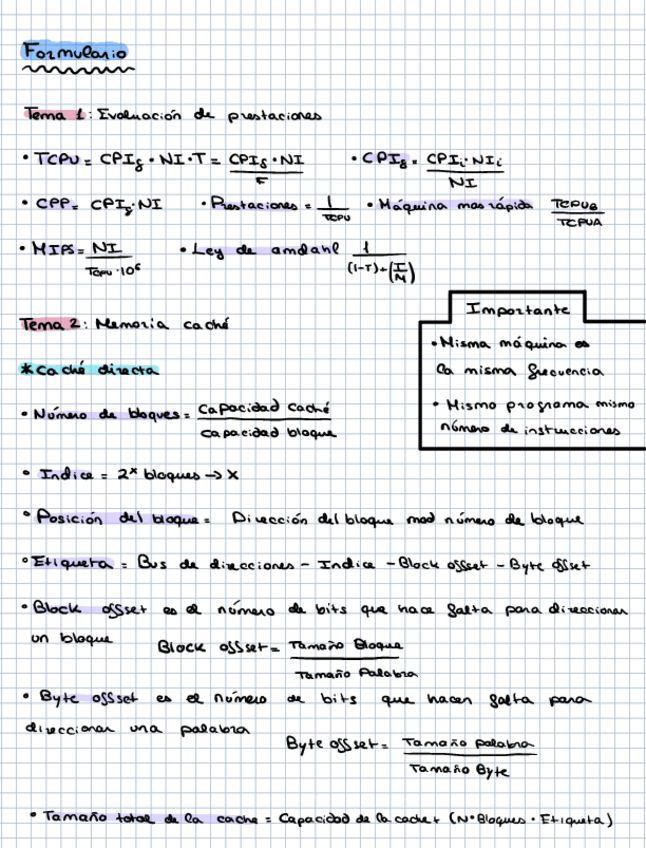 Formulario
Tema 1: Evaluación de prestaciones
• TCPU = CPIg · NI · T = CPIg · NI / F   • CPIg = CPIi · NIi / NI
• CPP = CPIg · NI   • Prestaciones = 1 / TCPU   • Máquina mas rápida TCPUB / TCPUA
• MIPS = NI / TCPU · 10⁶   • Ley de amdahl 1 / (1-T)+(T/M)
Importante
• Misma máquina es
la misma frecuencia
• Mismo programa mismo
número de instrucciones
Tema 2: Memoria caché
* Caché directa
• Número de bloques = capacidad caché / capacidad bloque
• Indice = 2ˣ bloques -> X
• Posición del bloque = Dirección del bloque mod número de bloque
• Etiqueta = Bus de direcciones - Indice - Block offset - Byte offset
• Block offset es el número de bits que hace falta para direccionar
un bloque   Block offset = Tamaño Bloque / Tamaño Palabra
• Byte offset es el número de bits que hacen falta para
direccionar una palabra
Byte offset = Tamaño palabra / Tamaño Byte
• Tamaño total de la cache = Capacidad de la cache + (Nº Bloques · Etiqueta)